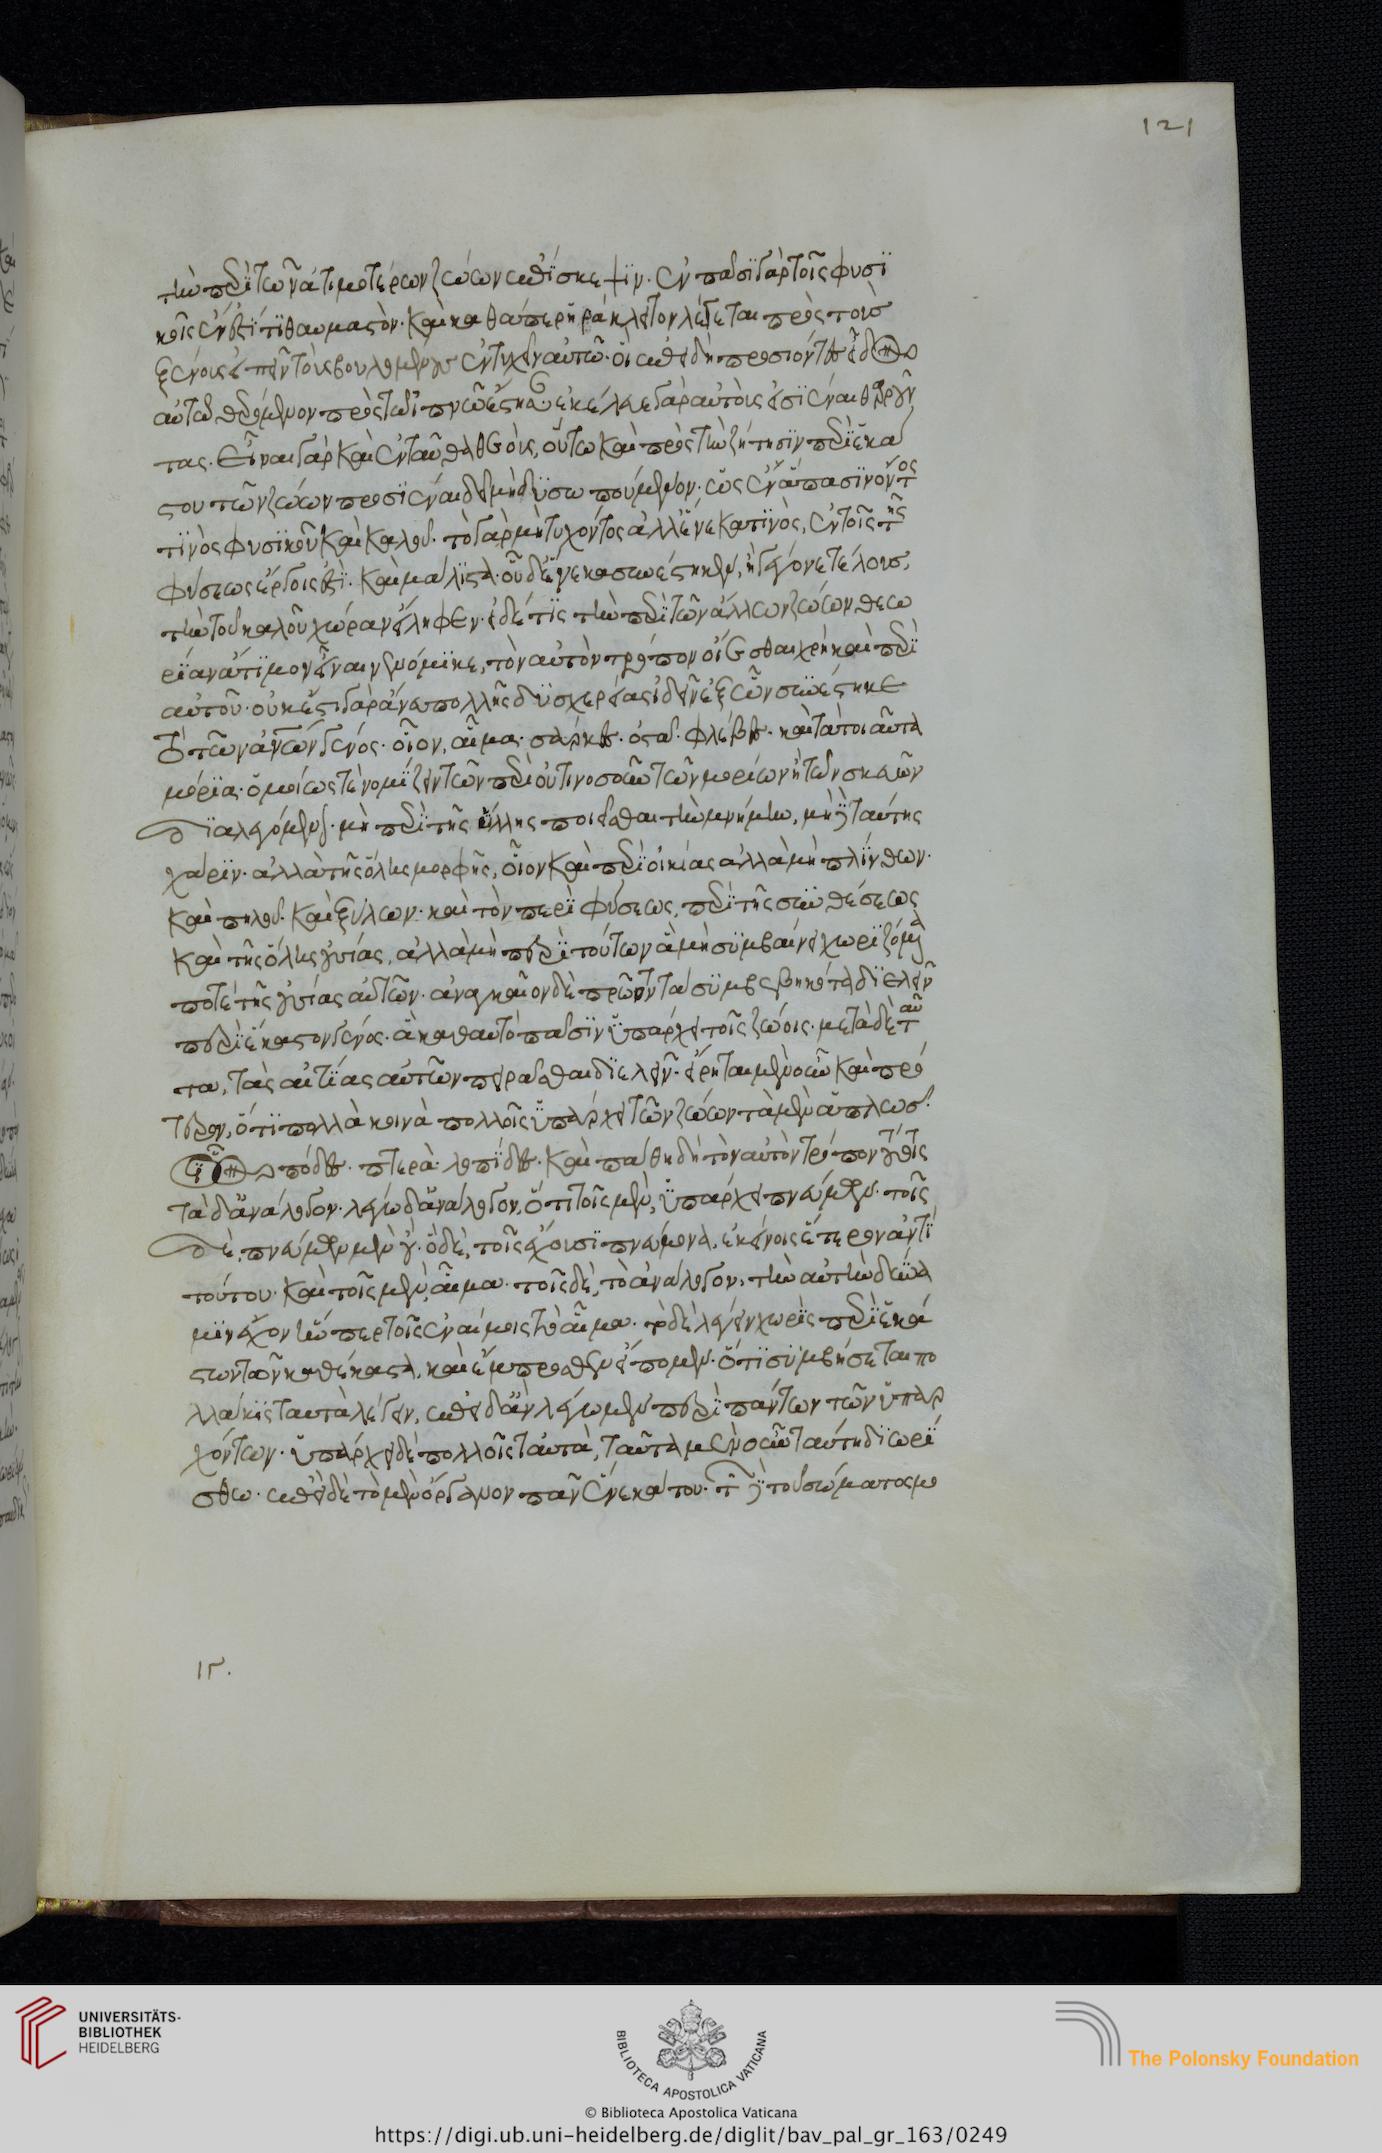 τὴν περὶ τῶν ἀτιμοτέρων ζώων ἐπίσκεψιν. ἐν πᾶσι γὰρ τοῖς φυσι
κοῖς ἔνεστί τι θαυμαστὸν. καὶ καθάπερ ἡράκλειτον λέγεται πρὸς τοὺς
ξένους εἰπεῖν τοὺς βουλομένους ἐντυχεῖν αὐτῶ. οἱ ἐπειδὴ προσιόντες εἶδον
αὐτὸν θερόμενον πρὸς τῶ ἰπνῶ ἔστησαν ἐκέλευε γὰρ αὐτοὺς εἰσιέναι θαρροῦν
τας. εἶναι γὰρ καὶ ἐνταῦθα θεοὺς, οὕτω καὶ πρὸς τὴν ζήτησιν περὶ ἑκά
στου τῶν ζώων προσιέναι δεῖ μὴ δυσωπούμενον. ὡς ἐν ἅπασιν ὄντος
τινὸς φυσικοῦ καὶ καλοῦ. τὸ γὰρ μὴ τυχόντος ἀλλ' ἕνεκα τινὸς, ἐν τοῖς τῆς
φύσεως ἔργοις ἐστὶ. καὶ μάλιστα. οὗ δ' ἕνεκα συνέστηκεν, ἢ γέγονε τέλους,
τὴν τοῦ καλοῦ χώραν εἴληφεν. εἰ δέ τις τὴν περὶ τῶν ἄλλων ζώων θεω
ρίαν ἄτιμον εἶναι νενόμικε, τὸν αὐτὸν τρόπον οἴεσθαι χρὴ καὶ περὶ
αὐτοῦ. οὐκ ἔστι γὰρ ἄνευ πολλῆς δυσχερείας ἰδεῖν ἐξ ὧν συνέστηκε
τὸ τῶν ἀνθρώπων γένος. οἷον, αἷμα. σάρκες. ὀστᾶ. φλέβες. καὶ τὰ τοιαῦτα
μόρια. ὁμοίως τὲ νομίζειν τῶν περὶ οὑτινοσοῦν τῶν μορίων ἢ τῶν σκευῶν
διαλεγόμενον. μὴ περὶ τῆς ὕλης ποιεῖσθαι τὴν μνήμην, μὴ δὲ ταύτης
χάριν. ἀλλὰ τῆς ὅλης μορφῆς, οἷον καὶ περὶ οἰκίας ἀλλὰ μὴ πλίνθων.
καὶ πηλοῦ. καὶ ξύλων. καὶ τὸν περὶ φύσεως, περὶ τῆς συνθέσεως
καὶ τῆς ὅλης οὐσίας, ἀλλὰ μὴ περὶ τούτων ἃ μὴ συμβαίνει χωριζόμενα
ποτὲ τῆς οὐσίας αὐτῶν. ἀναγκαῖον δὲ πρῶτον τὰ συμβεβηκότα διελεῖν
περὶ ἕκαστον γένος. ἃ καθαυτὸ πᾶσιν ὑπάρχει τοῖς ζώοις. μετὰ δὲ ταῦ
τα, τὰς αἰτίας αὐτῶν πειρᾶσθαι διελεῖν. εἴρηται μὲν οὖν καὶ πρό
τερον, ὅτι πολλὰ κοινὰ πολλοῖς ὑπάρχει τῶν ζώων τὰ μὲν ἁπλῶς.
οἷον πόδες. πτερὰ. λεπίδες. καὶ πάθη δὴ τὸν αὐτὸν τρόπον τούτοις
τὰ δ' ἀνάλογον. λέγω δ' ἀνάλογον, ὅτι τοῖς μὲν, ὑπάρχει πνεύμων. τοῖς
δὲ, πνεύμων μὲν οὔ. ὃ δὲ, τοῖς ἔχουσι πνεύμονα, ἐκείνοις ἕτερον ἀντὶ
τούτου. καὶ τοῖς μὲν, αἷμα. τοῖς δὲ, τὸ ἀνάλογον, τὴν αὐτὴν δύνα
μιν ἔχον ἥνπερ τοῖς ἐναίμοις τὸ αἷμα. τὸ δὲ λέγειν χωρὶς περὶ ἑκά
στων τῶν καθέκαστα, καὶ ἔμπροσθεν εἴπομεν. ὅτι συμβήσεται πο
λλάκις ταυτὰ λέγειν, ἐπειδὰν λέγωμεν περὶ πάντων τῶν ὑπαρ
χόντων. ὑπάρχει δὲ πολλοῖς ταὐτὰ, ταῦτα μὲν οὖν ταύτη διωρί
σθω. ἐπεὶ δὲ τὸ μὲν ὄργανον πᾶν ἕνεκά του. τῶν δὲ τοῦ σώματος μο
ιγ.
121
UNIVERSITÄTS-
BIBLIOTHEK
HEIDELBERG
BIBLIOTECA APOSTOLICA VATICANA
The Polonsky Foundation
© Biblioteca Apostolica Vaticana
https://digi.ub.uni-heidelberg.de/diglit/bav_pal_gr_163/0249